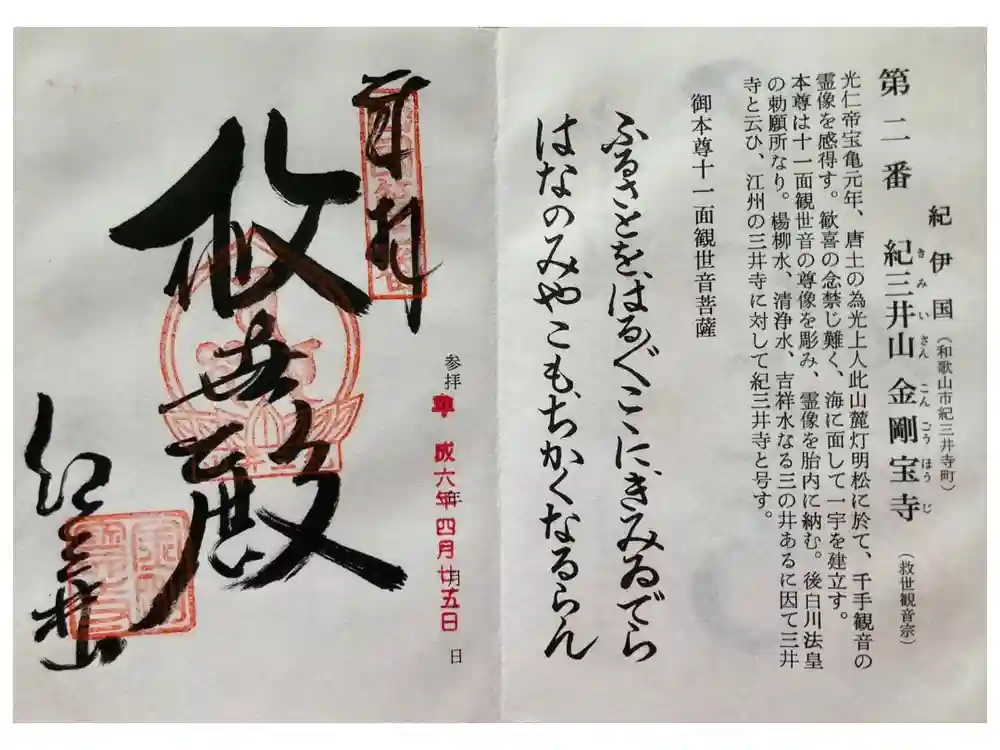 紀伊国（和歌山市紀三井寺町）
第二番 紀三井山金剛宝寺（救世観音宗）
きみいさんこんごうほうじ
光仁帝宝亀元年、唐土の為光上人此山麓灯明松に於て、千手観音の
霊像を感得す。歓喜の念禁じ難く、海に面して一宇を建立す。
本尊は十一面観世音の尊像を彫み、霊像を胎内に納む。後白川法皇
の勅願所なり。楊柳水、清浄水、吉祥水なる三の井あるに因て三井
寺と云ひ、江州の三井寺に対して紀三井寺と号す。
御本尊十一面観世音菩薩
ふるさとをはるばるこゝにきみゐでら
はなのみやこもちかくなるらん
奉拝
救世殿
紀三井山
参拝 年 月 日
成六年四月廿五日